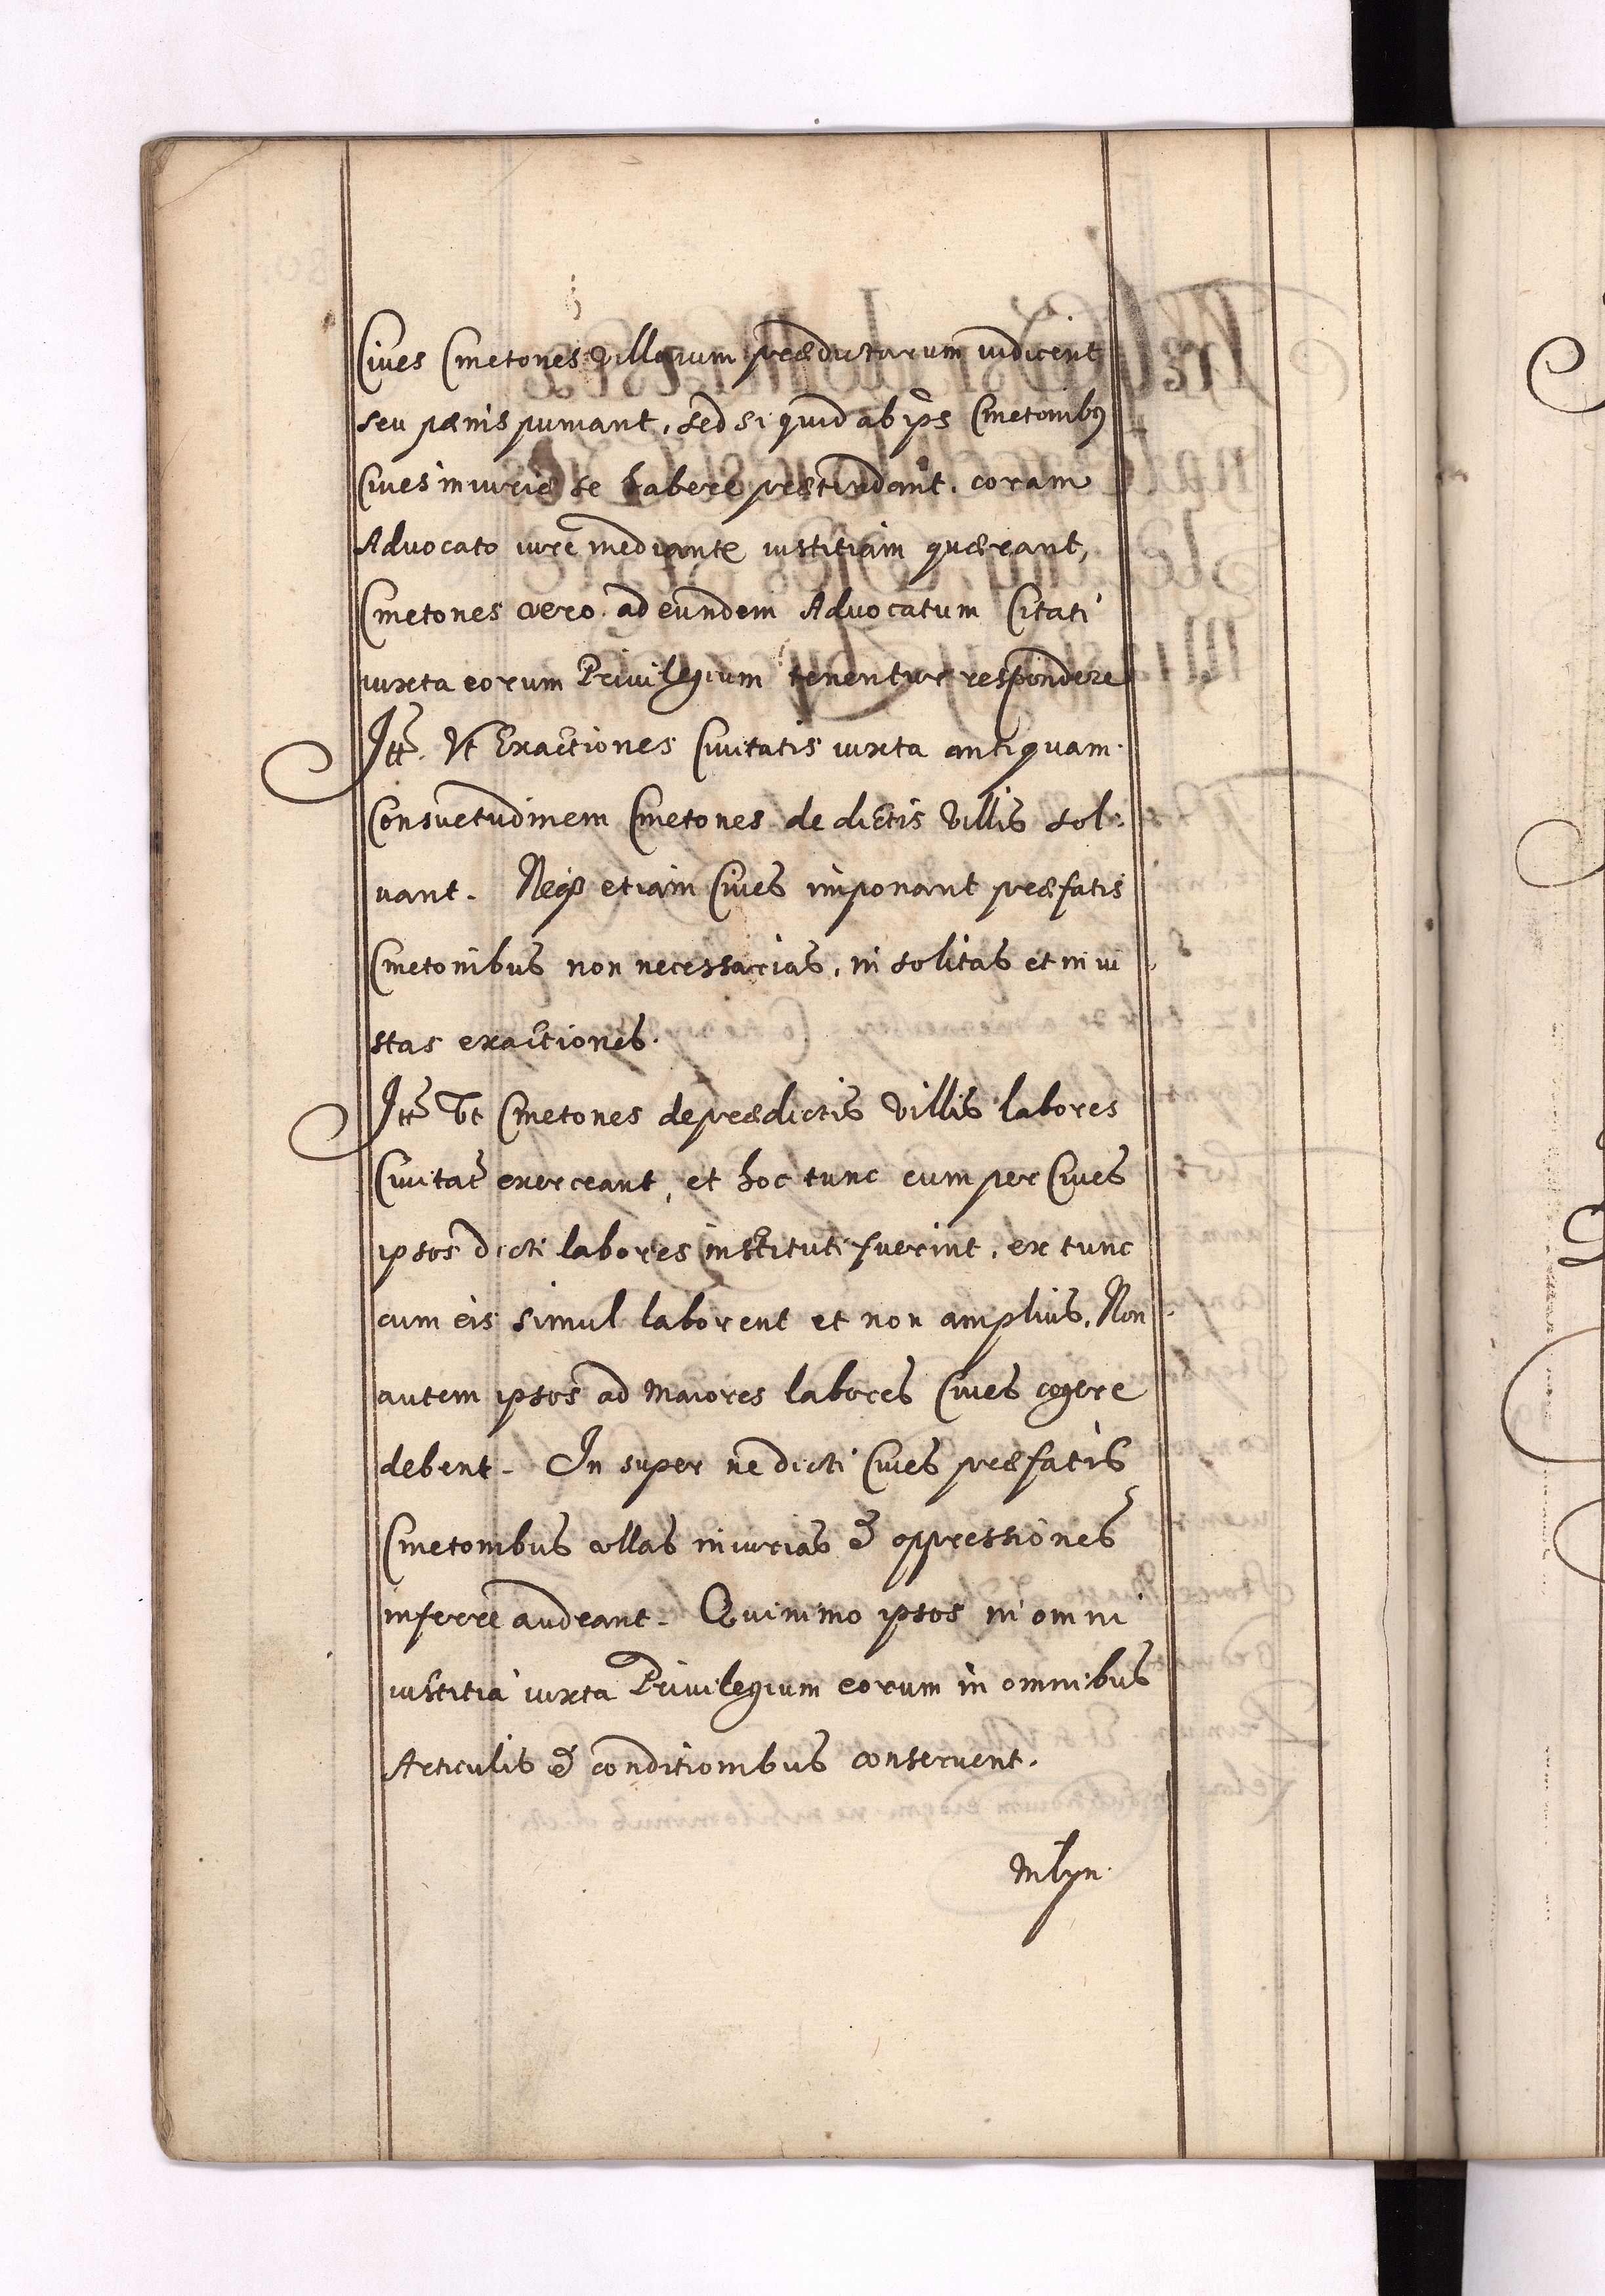 Cives Cmetones Villarum prædictarum iudicent
seu pænis puniant, sed si quid ab ips Cmetonibꝫ
Cives iniuriæ se habere prætendant, coram
Advocato iure mediante iustitiam quærant,
Cmetones vero ad eundem Advocatum Citati
iuxta eorum Privilegium tenentur respondere
Itt. Vt Exactiones Civitatis iuxta antiquam
Consvetudinem Cmetones de dictis Villis sol:
vant. Neqꝫ etiam Cives imponant præfatis
Cmetonibus non necessarias, in solitas et in iu
stas exactiones.
Itt Vt Cmetones de prædictis Villis labores
Civitat exerceant, et hoc tunc cum per Cives
ipsos dicti labores instituti fuerint, ex tunc
cum eis simul laborent et non amplius, Non
autem ipsos ad maiores labores Cives cogere
debent. In super ne dicti Cives præfatis
Cmetonibus ullas iniurias & oppressiones
inferre audeant. Quinimo ipsos in omni
iustitia iuxta Privilegium eorum in omnibus
Articulis & conditionibus conservent.
Mlyn.